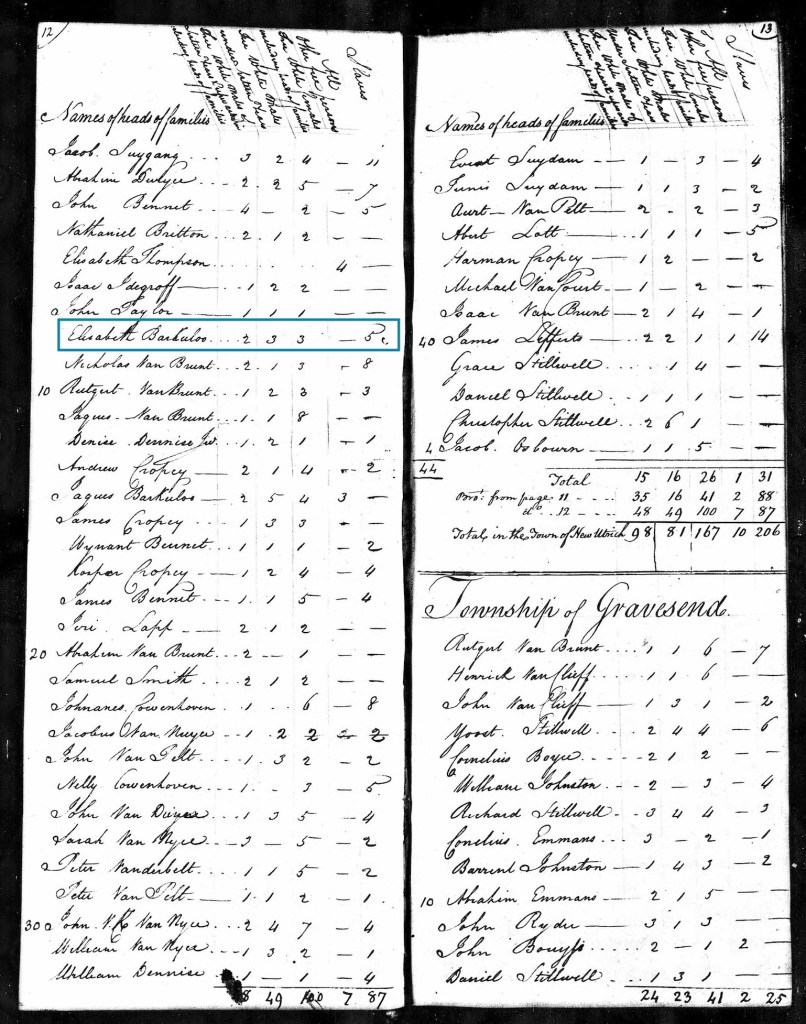 12
Names of heads of families
Free White Males of sixteen years & upwards including heads of families
Free White Males under sixteen years
Free White Females including heads of families
All other free persons
Slaves
Jacob Suygang 3 2 4 — 11
Abrahim Duryee 2 2 5 — 7
John Bennet 4 — 2 — 5
Nathaniel Britton 2 1 2 — —
Elisabeth Thompson 4 —
Isaac Idegroff 1 2 2 — —
John Taylor 1 1 1 — —
Elisabeth Barkuloo 2 3 3 — 5
Nicholas Van Brunt 2 1 3 - 8
10 Rutgert Van Brunt 1 2 3 - 3
Jaques Van Brunt 1 1 8 — —
Denise Dennise Jur. 1 2 1 — 1
Andrew Cropcy 2 1 4 — 2
Jaques Barkuloo 2 5 4 3 —
James Cropcy 1 3 3 — —
Wynant Bennet 1 1 1 — 2
Kasper Cropcy 1 2 4 — 4
James Bennet 1 1 5 — 4
Jeri Lapp 2 1 2 — —
20 Abrahim Van Brunt 2 — 1 — —
Samuel Smith 2 1 2 — —
Johnanes Cowenhoven 1 6 — 8
Jacobus Van Nuyse 1 2 2 — 2
John Van Pelt 1 3 2 — 2
Nelly Cowenhoven 1 - 3 — 5
John Van Duyee 1 3 5 — 4
Sarah Van Nyce 3 — 5 — 2
Peter Vanderbelt 1 1 5 — 2
Peter Van Pelt 1 1 2 — 1
30 John Van Nyce 2 4 7 — 4
William Van Nyce 1 3 2 — 1
William Dennise 1 — 1 — 4
8 49 100 7 87
13
Names of heads of families
Free White Males of sixteen years & upwards including heads of families
Free White Males under sixteen years
Free White Females including heads of families
All other free persons
Slaves
Evert Suydam 1 - 3 — 4
Tunis Suydam 1 1 3 — 2
Aurt Van Pelt 2 - 2 — 3
Abert Lott 1 1 1 — 5
Harman Cropcy 1 2 — — 2
Michael Van Court 1 — 2 — —
Isaac Van Brunt 2 1 4 — 1
40 James Lefferts 2 2 1 1 14
Grace Stillwell 1 4 — —
Daniel Stillwell 1 1 1 — —
Christopher Stillwell 2 6 1 — —
4 Jacob Osbourn 1 1 5 — —
44
Total 15 16 26 1 31
Bro: from page 11 35 16 41 2 88
do. 12 48 49 100 7 87
Total in the Town of New Utrich 98 81 167 10 206
Township of Gravesend.
Rutgert Van Brunt 1 1 6 — 7
Henrick Van Clieff 1 1 6 — —
John Van Clieff 1 3 1 — 2
Yoost Stillwell 2 4 4 — 6
Cornelius Boyce 2 1 2 — —
William Johnston 2 — 3 — 4
Richard Stillwell 3 4 4 — 3
Conelius Emmans 3 — 2 — 1
Barrent Johnston 1 4 3 — 2
10 Abrahim Emmans 2 1 5 —
John Ryder 3 1 3 —
John Bouyss 2 — 1 2 —
Daniel Stillwell 1 3 1 — —
24 23 41 2 25